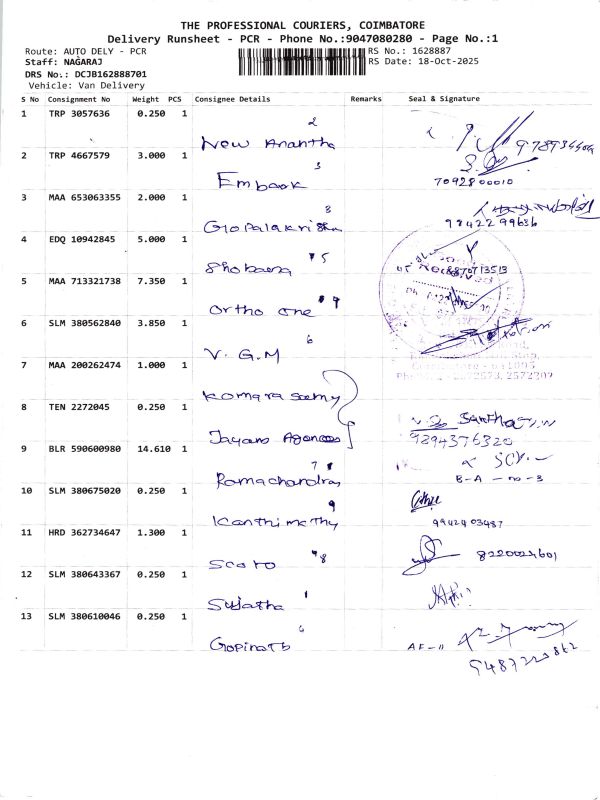 THE PROFESSIONAL COURIERS, COIMBATORE
Delivery Runsheet - PCR - Phone No.:9047080280 - Page No.:1
Route: AUTO DELY - PCR RS No.: 1628887
Staff: NAGARAJ RS Date: 18-Oct-2025
DRS No.: DCJB162888701
Vehicle: Van Delivery
S No Consignment No Weight PCS Consignee Details Remarks Seal & Signature
1 TRP 3057636 0.250 1
2
New Anantha
2 TRP 4667579 3.000 1
3
Embook 7092800010
3 MAA 653063355 2.000 1
8
Gopalakrishna 9842299636
4 EDQ 10942845 5.000 1
5
Shobana 8870713513
5 MAA 713321738 7.350 1
9
Ortho one
6 SLM 380562840 3.850 1
6
V. G. M
7 MAA 200262474 1.000 1
Komarasamy
8 TEN 2272045 0.250 1
Jayam Agencies 9894376320
9 BLR 590600980 14.610 1
7 8
Ramachandran B-A - no-3
10 SLM 380675020 0.250 1
9
Kanthimathy 9942403487
11 HRD 362734647 1.300 1
8
Scoto 8220024601
12 SLM 380643367 0.250 1
1
Sujatha
13 SLM 380610046 0.250 1
6
Gopinath AF-11
9487223862